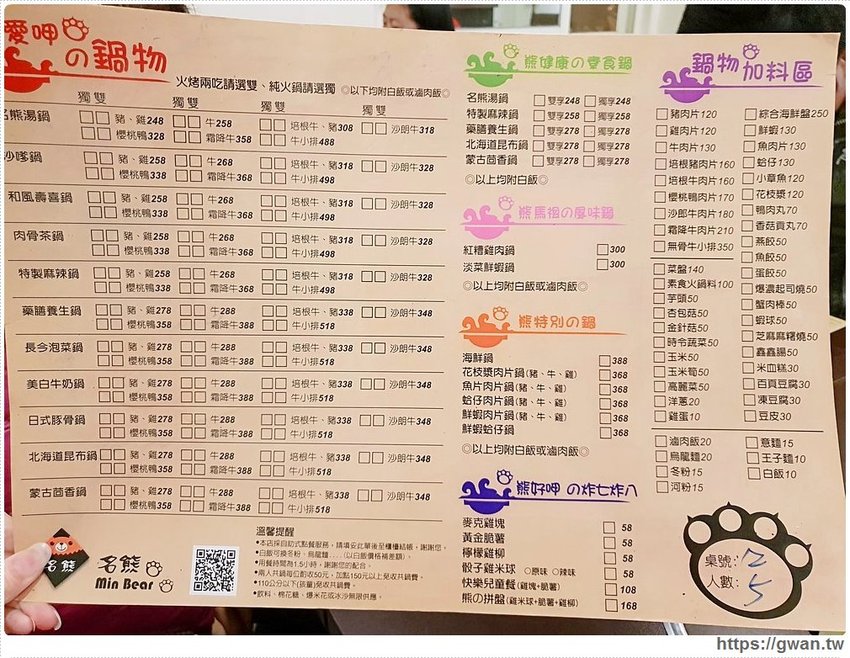 愛呷の鍋物
火烤兩吃請選雙、純火鍋請選獨 ◎以下均附白飯或滷肉飯◎
獨 雙 獨 雙 獨 雙 獨 雙
名熊湯鍋 豬、雞248 牛258 培根牛、豬308 沙朗牛318
櫻桃鴨328 霜降牛358 牛小排488
沙嗲鍋 豬、雞258 牛268 培根牛、豬318 沙朗牛328
櫻桃鴨338 霜降牛368 牛小排498
和風壽喜鍋 豬、雞258 牛268 培根牛、豬318 沙朗牛328
櫻桃鴨338 霜降牛368 牛小排498
肉骨茶鍋 豬、雞258 牛268 培根牛、豬318 沙朗牛328
櫻桃鴨338 霜降牛368 牛小排498
特製麻辣鍋 豬、雞258 牛268 培根牛、豬318 沙朗牛328
櫻桃鴨338 霜降牛368 牛小排498
藥膳養生鍋 豬、雞278 牛288 培根牛、豬338 沙朗牛348
櫻桃鴨358 霜降牛388 牛小排518
長今泡菜鍋 豬、雞278 牛288 培根牛、豬338 沙朗牛348
櫻桃鴨358 霜降牛388 牛小排518
美白牛奶鍋 豬、雞278 牛288 培根牛、豬338 沙朗牛348
櫻桃鴨358 霜降牛388 牛小排518
日式豚骨鍋 豬、雞278 牛288 培根牛、豬338 沙朗牛348
櫻桃鴨358 霜降牛388 牛小排518
北海道昆布鍋 豬、雞278 牛288 培根牛、豬338 沙朗牛348
櫻桃鴨358 霜降牛388 牛小排518
蒙古茴香鍋 豬、雞278 牛288 培根牛、豬338 沙朗牛348
櫻桃鴨358 霜降牛388 牛小排518
名熊
名熊
Min Bear
溫馨提醒
•本店採自助式點餐服務，請填妥此單後至櫃檯結帳，謝謝您。
•白飯可換冬粉、烏龍麵....(以白飯價格補差額)。
•用餐時間為1.5小時，謝謝您的配合。
•兩人共鍋每位酌收50元，加點150元以上免收共鍋費。
•110公分以下(孩童)免收共鍋費。
•飲料、棉花糖、爆米花或冰沙無限供應。
熊健康の素食鍋
名熊湯鍋 雙享248 獨享248
特製麻辣鍋 雙享258 獨享258
藥膳養生鍋 雙享278 獨享278
北海道昆布鍋 雙享278 獨享278
蒙古茴香鍋 雙享278 獨享278
◎以上均附白飯◎
熊馬祖の風味鍋
紅糟雞肉鍋 300
淡菜鮮蝦鍋 300
◎以上均附白飯或滷肉飯◎
熊特別の鍋
海鮮鍋 388
花枝漿肉片鍋(豬、牛、雞) 368
魚片肉片鍋(豬、牛、雞) 368
蛤仔肉片鍋(豬、牛、雞) 368
鮮蝦肉片鍋(豬、牛、雞) 368
鮮蝦蛤仔鍋 368
◎以上均附白飯或滷肉飯◎
熊好呷 の炸七炸八
麥克雞塊 58
黃金脆薯 58
檸檬雞柳 58
骰子雞米球 ○原味 ○辣味 58
快樂兒童餐(雞塊+脆薯) 108
熊の拼盤(雞米球+脆薯+雞柳) 168
鍋物加料區
豬肉片120
雞肉片120
牛肉片130
培根豬肉片160
培根牛肉片160
櫻桃鴨肉片170
沙郎牛肉片180
霜降牛肉片210
無骨牛小排350
菜盤140
素食火鍋料100
芋頭50
杏包菇50
金針菇50
時令蔬菜50
玉米50
玉米筍50
高麗菜50
洋蔥20
雞蛋10
綜合海鮮盤250
鮮蝦130
魚肉片130
蛤仔130
小章魚120
花枝漿120
鴨肉丸70
香菇貢丸70
燕餃50
魚餃50
蛋餃50
爆濃起司燒50
蟹肉棒50
蝦球50
芝麻麻糬燒50
鑫鑫腸50
米血糕30
百頁豆腐30
凍豆腐30
豆皮30
滷肉飯20
烏龍麵20
冬粉15
河粉15
意麵15
王子麵10
白飯10
桌號: 2
人數: 5
https://gwan.tw